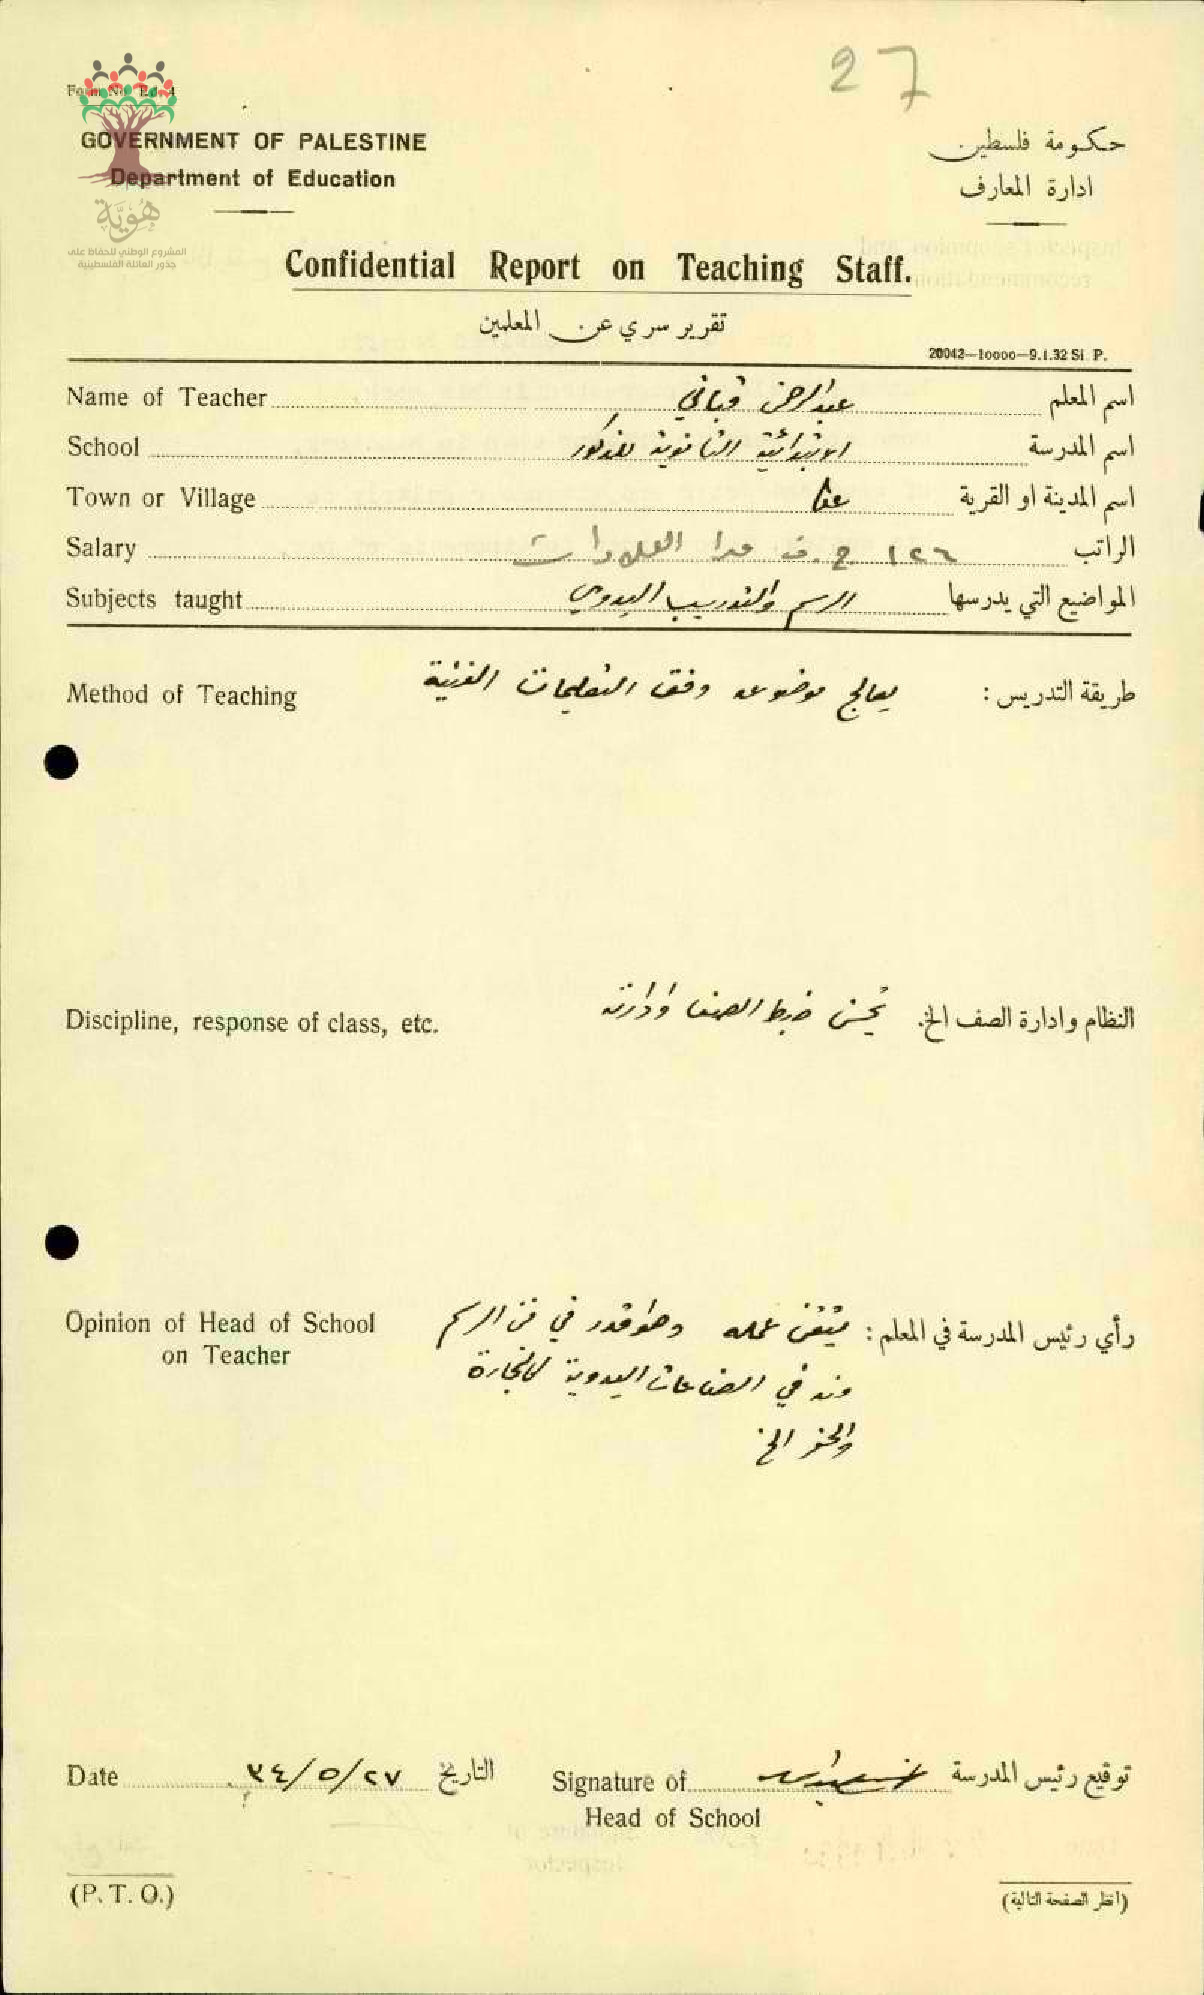 27
Form No. Ed. 4
GOVERNMENT OF PALESTINE
Department of Education
حكومة فلسطين
ادارة المعارف
هوية
المشروع الوطني للحفاظ على
جذور العائلة الفلسطينية
Confidential Report on Teaching Staff.
تقرير سري عن المعلمين
20042—10000—9.1.32 Si. P.
Name of Teacher عبد الرحمن قباني اسم المعلم
School الابتدائية الثانوية للذكور اسم المدرسة
Town or Village عكا اسم المدينة او القرية
Salary ١٢٦ ج.ف عدا العلاوات الراتب
Subjects taught الرسم والتدريب اليدوي المواضيع التي يدرسها
Method of Teaching يعالج موضوعه وفق التعليمات الفنية طريقة التدريس :
Discipline, response of class, etc. يحسن ضبط الصف وادارته النظام وادارة الصف الخ.
Opinion of Head of School يتقن عمله وهو اقدر في فن الرسم رأي رئيس المدرسة في المعلم :
on Teacher منه في الصناعات اليدوية كالنجارة
والحفر الخ
Date ٣٤/٥/٢٧ التاريخ Signature of توقيع رئيس المدرسة
Head of School
(P. T. O.) (انظر الصفحة التالية)